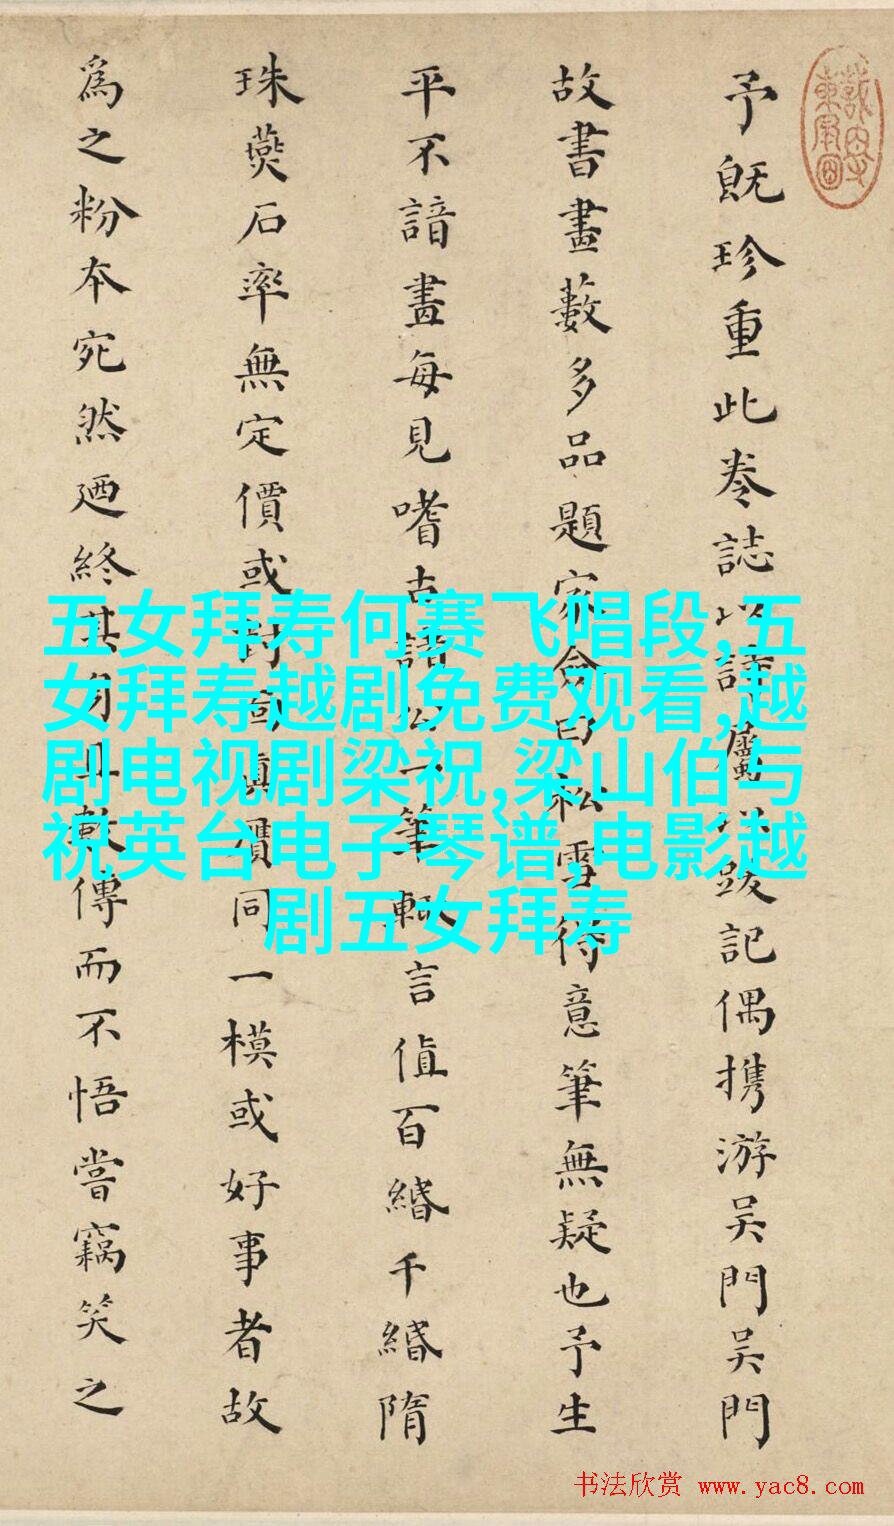 予既珍重此卷誌以詩 以跋記偶携游吴門吴門
故書畫藪多品題家僉曰松雪得意筆無疑也予生
平不諳畫每見嗜古諸公一筆輙言值百緡千緡隋
珠燕石率無定價或 真贋同一模或好事者故
爲之粉夲宛然迺終其 傳而不悟嘗竊笑之
五女拜寿何赛飞唱段,五
女拜寿越剧免费观看,越
剧电视剧梁祝,梁山伯与
祝英台电子琴谱,电影越
剧五女拜寿
书法欣赏 www.yac8.com